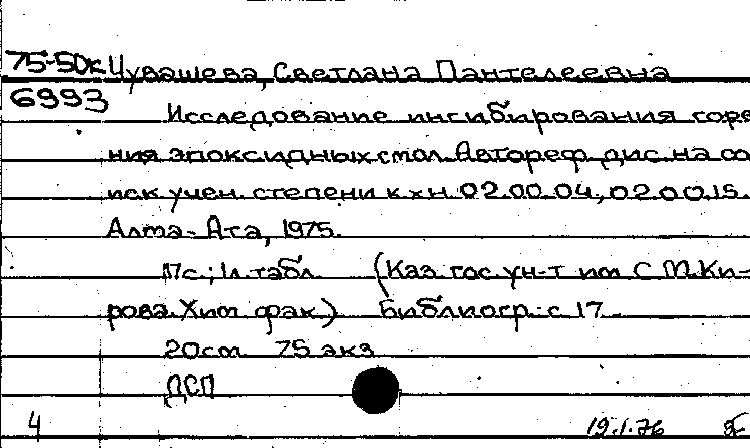 75-50к Чувашева, Светлана Пантелеевна
6993
Исследование ингибирования горе-
ния эпоксидных смол. Автореф. дис. на со-
иск. учен. степени к.х.н. 02.00.04, 02.00.15.
Алма-Ата, 1975.
17с.; 1л. табл. (Каз. гос. ун-т им. С.М. Ки-
рова. Хим. фак.) Библиогр.: с. 17
20см 75 экз.
ДСП
4 19.1.76